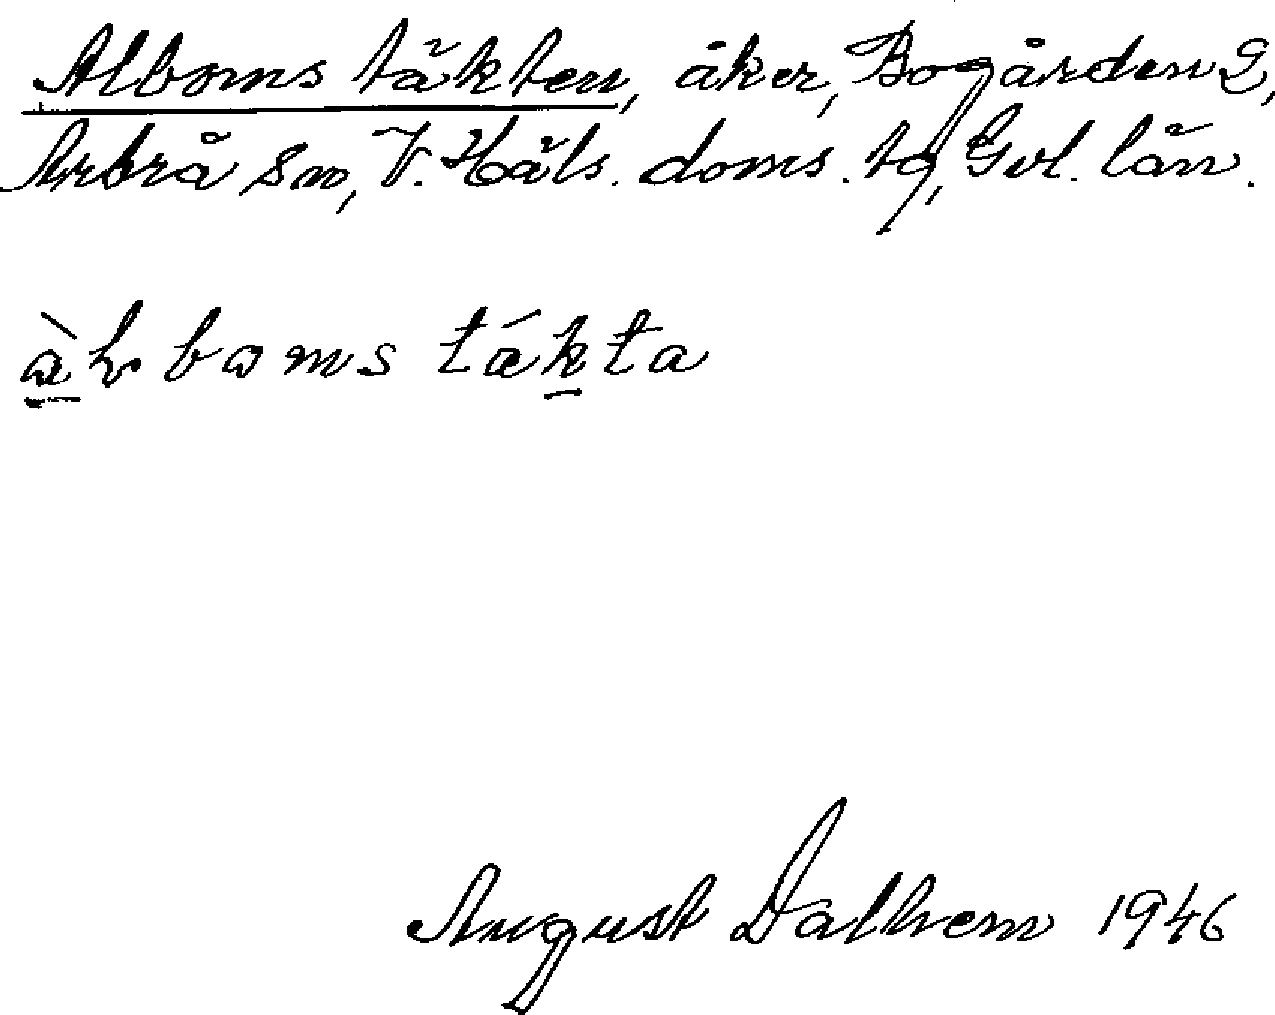 Alboms täkten, åker, Bogården 2,
Arbrå sn, V. Häls. doms. tg, Gvl. län.
àlboms tǽkta
August Dalhem 1946